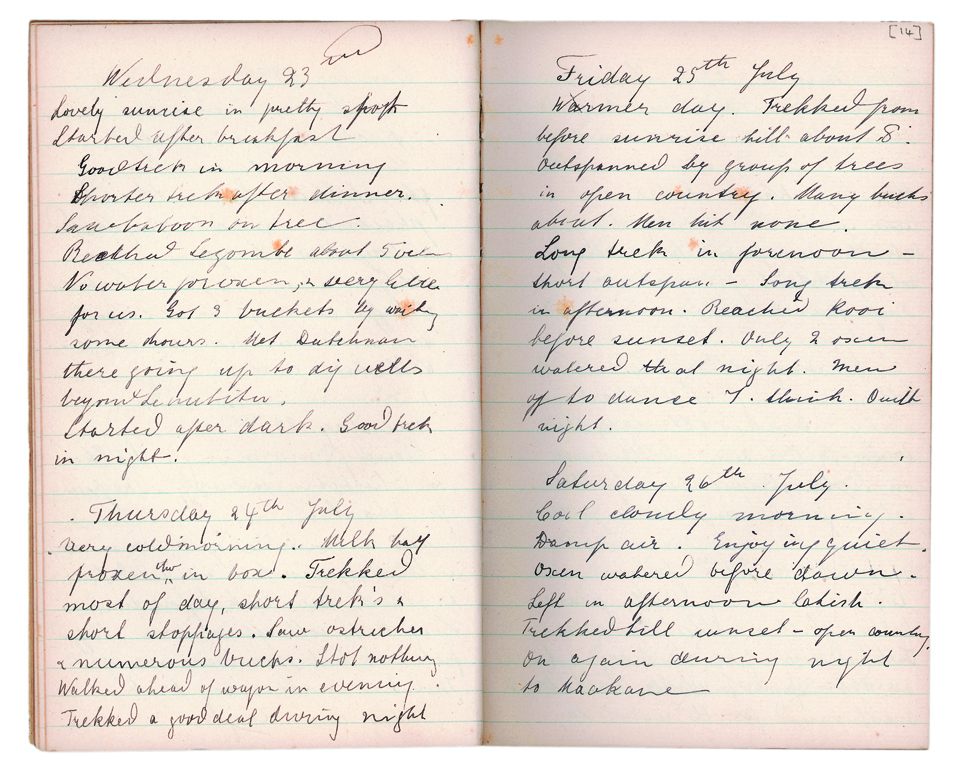 Wednesday 23rd
Lovely sunrise in pretty spot
Started after breakfast
Good trek in morning
Shorter trek after dinner.
Saw baboon on tree.
Reached Segombe about 5
No water for oxen, & very little
for us. Got 3 buckets by waiting
some hours. Met Dutchman
there going up to dig wells
beyond
Started after dark. Good trek
in night.
Thursday 24th July
Very cold morning. Milk half
frozen tho' in box. Trekked
most of day, short trek's &
short stoppages. Saw ostriches
& numerous bucks. Shot nothing
Walked ahead of wagon in evening.
Trekked a good deal during night
[14]
Friday 25th July
Warmer day. Trekked from
before sunrise till about 8.
Outspanned by group of trees
in open country. Many bucks
about. Men hit none.
Long trek in forenoon –
short outspan – Long trek
in afternoon. Reached Kooi
before sunset. Only 2 oxen
watered that night. Men
off to dance I think. Quiet
night.
Saturday 26th July.
Cool cloudy morning.
Damp air. Enjoying quiet.
Oxen watered before dawn.
Left in afternoon latish.
Trekked till sunset – open country.
On again during night
to Kaakane